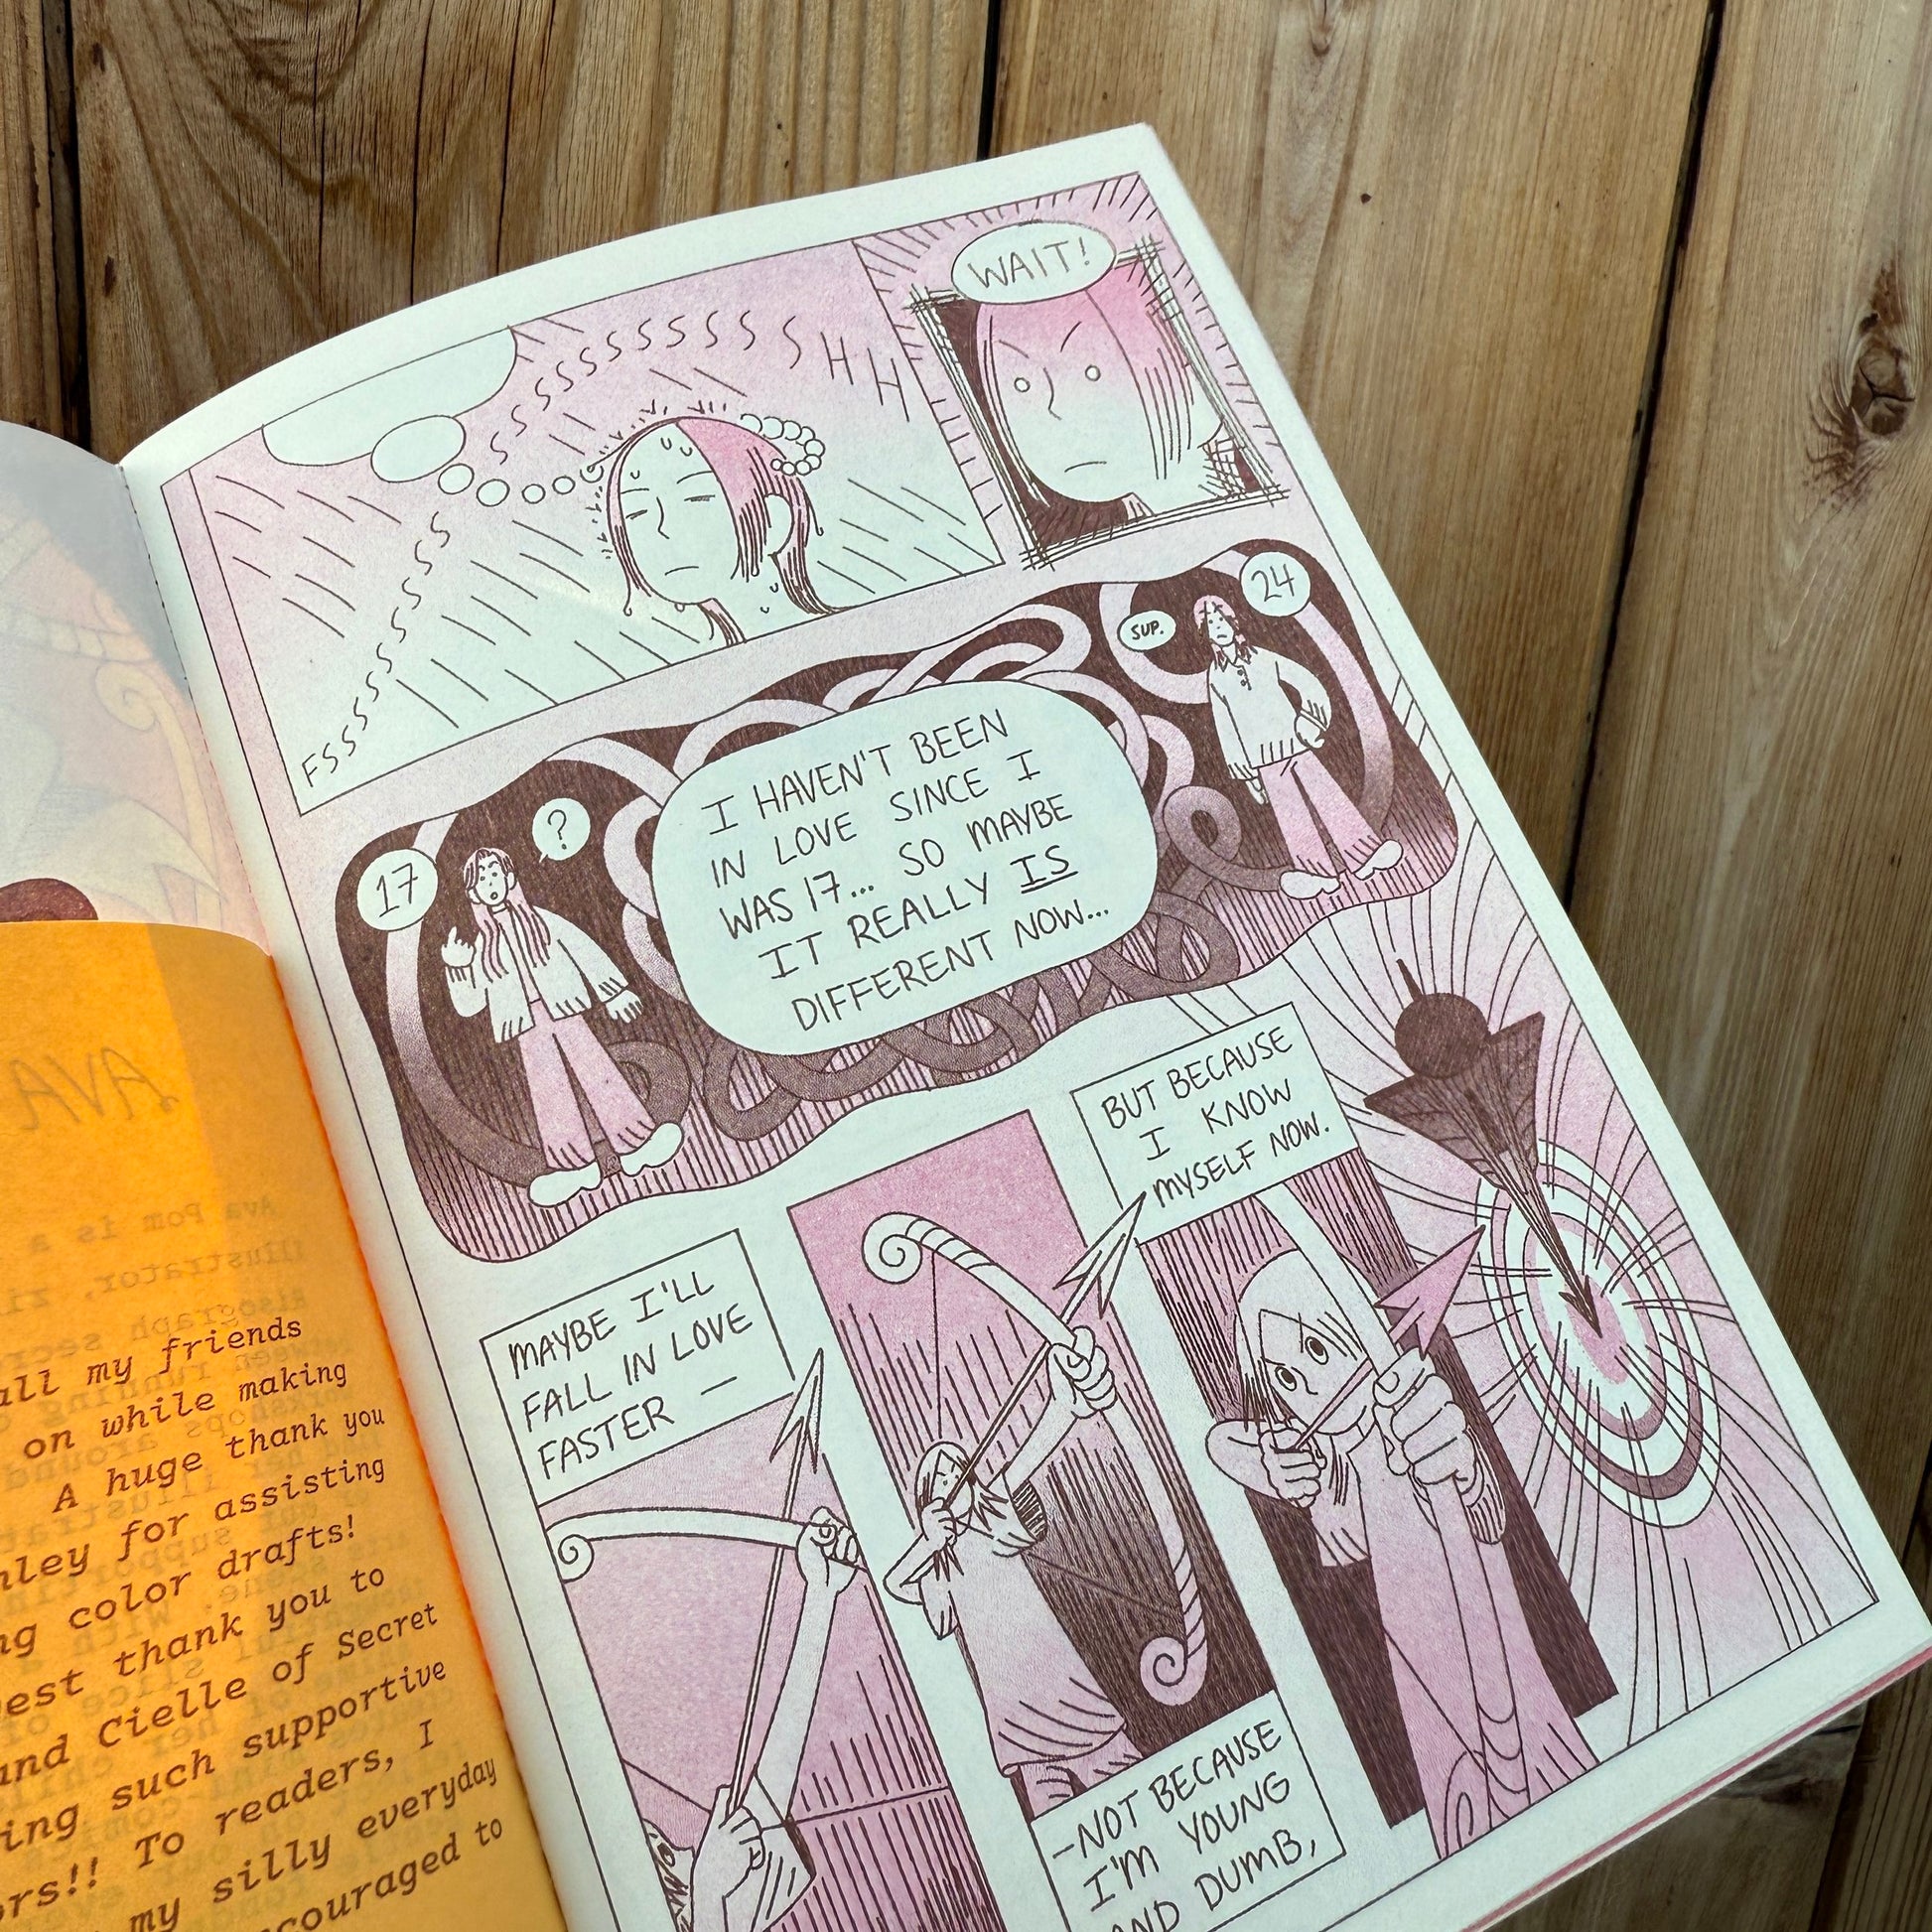 FSSSSSSSSSSSSSSSSSSSSSSSSHHH
WAIT!
17
?
I HAVEN'T BEEN
IN LOVE SINCE I
WAS 17... SO MAYBE
IT REALLY IS
DIFFERENT NOW...
SUP.
24
MAYBE I'LL
FALL IN LOVE
FASTER —
—NOT BECAUSE
I'M YOUNG
AND DUMB,
BUT BECAUSE
I KNOW
MYSELF NOW.
AVA
Ava Pom is a
all my friends
on while making
A huge thank you
for assisting
color drafts!
thank you to
and Cielle of Secret
such supportive
To readers, I
my silly everyday
to